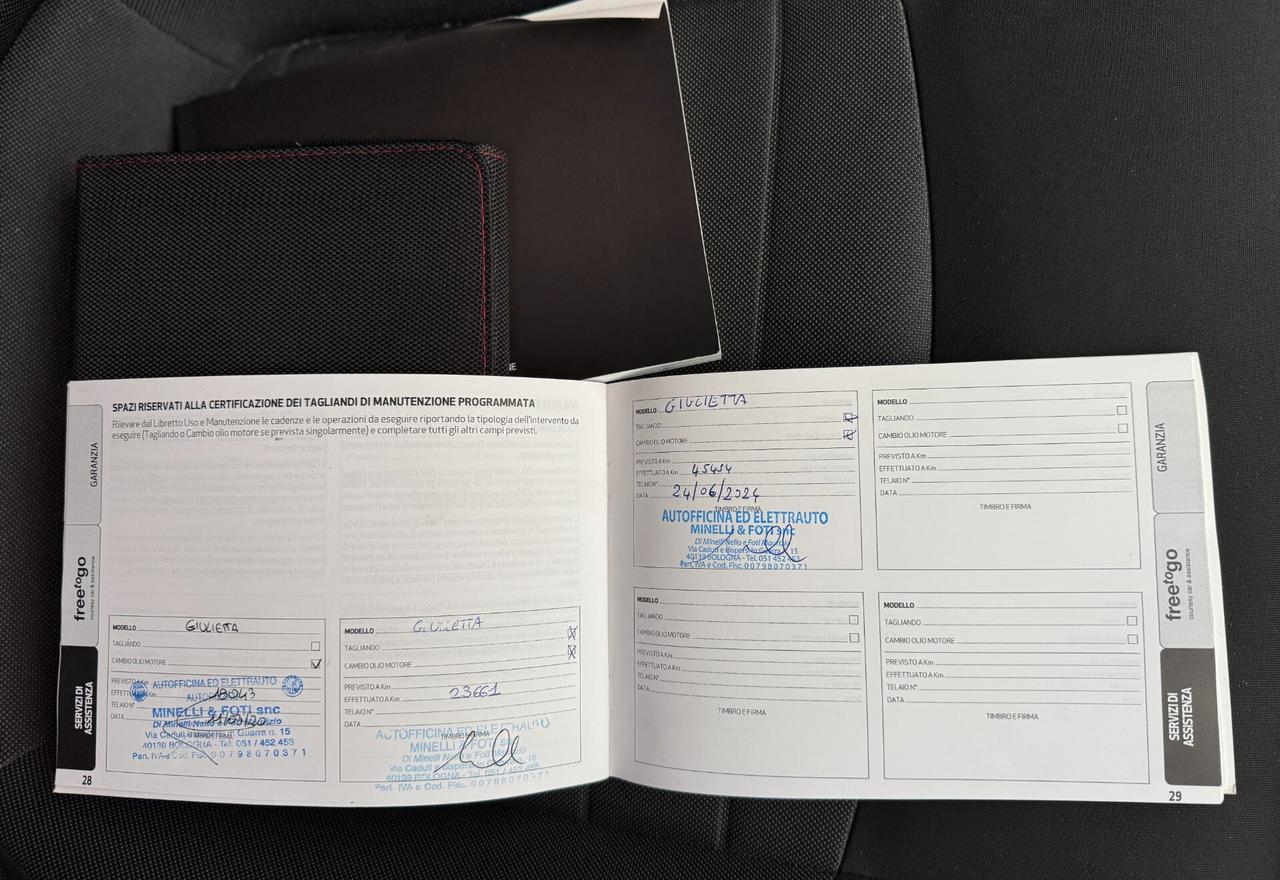 NE
SPAZI RISERVATI ALLA CERTIFICAZIONE DEI TAGLIANDI DI MANUTENZIONE PROGRAMMATA
Rilevare dal Libretto Uso e Manutenzione le cadenze e le operazioni da eseguire riportando la tipologia dell'intervento da
eseguire (Tagliando o Cambio olio motore se prevista singolarmente) e completare tutti gli altri campi previsti.
GARANZIA
freetogo
courtesy car & assistance
SERVIZI DI
ASSISTENZA
28
MODELLO GIULIETTA
TAGLIANDO
CAMBIO OLIO MOTORE
PREVISTO A Km
AUTOFFICINA ED ELETTRAUTO
TELAIO N°
MINELLI & FOTI snc
DATA
Di Minelli Nello e Foti
Via Caduti Guerra n. 15
TIMBRO E FIRMA
40139 BOLOGNA - Tel. 051 / 452 453
Part. IVA e Cod. Fisc. 0 0 7 9 8 0 7 0 3 7 1
MODELLO GIULIETTA
TAGLIANDO
CAMBIO OLIO MOTORE
PREVISTO A Km
EFFETTUATO A Km 23661
TELAIO N°
DATA
TIMBRO E FIRMA
AUTOFFICINA ED ELETTRAUTO
MINELLI & FOTI snc
Di Minelli Nello e Foti Maurizio
Via Caduti e dispersi in Guerra n. 15
40139 BOLOGNA - Tel. 051 / 452 453
Part. IVA e Cod. Fisc. 0 0 7 9 8 0 7 0 3 7 1
MODELLO GIULIETTA
TAGLIANDO
CAMBIO OLIO MOTORE
PREVISTO A Km
EFFETTUATO A Km 45454
TELAIO N°
DATA 24/06/2024
TIMBRO E FIRMA
AUTOFFICINA ED ELETTRAUTO
MINELLI & FOTI snc
Di Minelli Nello e Foti Maurizio
Via Caduti e dispersi in Guerra n. 15
40139 BOLOGNA - Tel. 051 452 453
Part. IVA e Cod. Fisc. 0 0 7 9 8 0 7 0 3 7 1
MODELLO
TAGLIANDO
CAMBIO OLIO MOTORE
PREVISTO A Km
EFFETTUATO A Km
TELAIO N°
DATA
TIMBRO E FIRMA
MODELLO
TAGLIANDO
CAMBIO OLIO MOTORE
PREVISTO A Km
EFFETTUATO A Km
TELAIO N°
DATA
TIMBRO E FIRMA
MODELLO
TAGLIANDO
CAMBIO OLIO MOTORE
PREVISTO A Km
EFFETTUATO A Km
TELAIO N°
DATA
TIMBRO E FIRMA
GARANZIA
freetogo
courtesy car & assistance
SERVIZI DI
ASSISTENZA
29